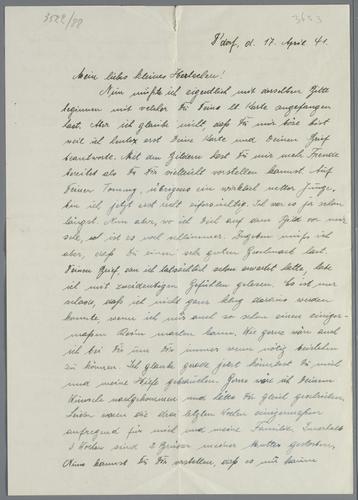 3522/88
D'dorf, d. 17. April 41.
Mein liebes kleines Herzchen!
Nun müßte ich eigentlich mit derselben Bitte
beginnen mit welcher Du Deine lt. Karte angefangen
hast. Aber ich glaube nicht, daß Du mir böse bist
weil ich heute erst Deine Karte und Deinen Brief
beantworte. Mit den Bildern hast Du mir mehr Freude
bereitet als Du Dir vielleicht vorstellen kannst. Auf
Deinen Tommy, übrigens ein wirklich netter Junge,
bin ich jetzt erst recht eifersüchtig. Ich war es ja schon
längst. Nun aber, wo ich Dich auf dem Bild vor mir
sehe, ist es noch schlimmer. Zugeben muß ich
aber, daß Du einen sehr guten Geschmack hast.
Deinen Brief, den ich tatsächlich schon erwartet hatte, habe
ich mit zweideutigen Gefühlen gelesen. Es ist nur
schade, daß ich nicht ganz klug daraus werden
konnte wenn ich mir auch so schon einen einiger-
maßen Reim machen kann. Wie gerne wäre ich
ich bei Dir um Dir immer wenn nötig beistehen
zu können. Ich glaube gerade jetzt könntest Du mich
und meine Hilfe gebrauchen. Gerne wäre ich Deinem
Wunsche nachgekommen und hätte Dir gleich geschrieben.
Leider waren die drei letzten Wochen einigermaßen
aufregend für mich und meine Familie. Innerhalb
3 Wochen sind 2 Brüder meiner Mutter gestorben.
Nun kannst Du Dir vorstellen, daß es mir kaum